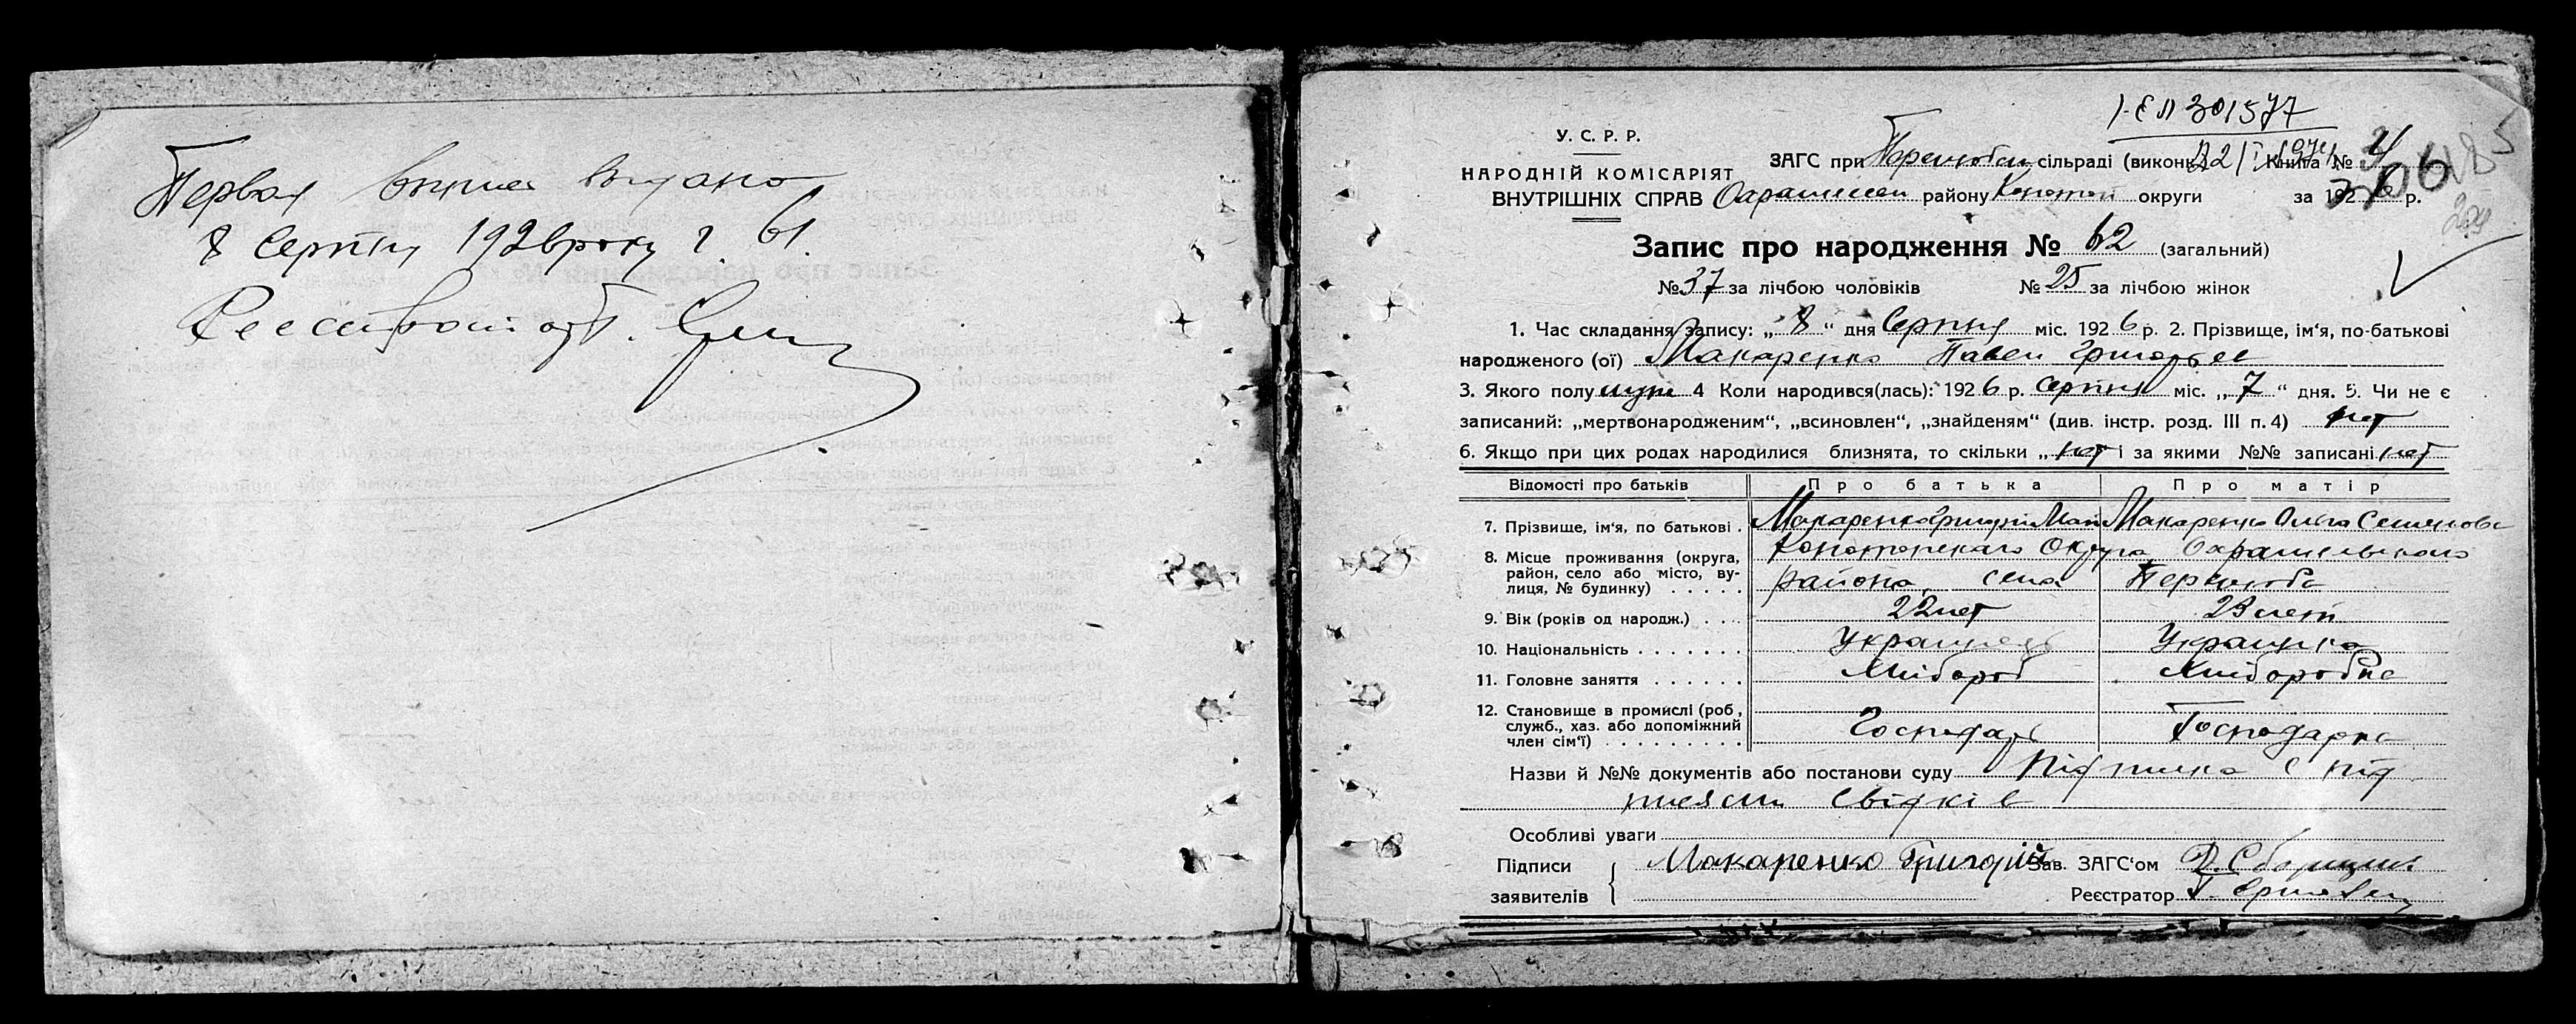 Первая выпись выдано
8 Серпня 1926 року г. 61.
І-ЕЛ 301577
22/І 1974
У. С. Р. Р.
НАРОДНІЙ КОМІСАРІЯТ
ВНУТРІШНІХ СПРАВ
ЗАГС при сільраді (виконк. Книга №
району Коното округи за 1926 р.
Запис про народження № 62 (загальний)
№ 37 за лічбою чоловіків № 25 за лічбою жінок
1. Час складання запису: „ 8 “ дня Серпня міс. 192 6 р. 2. Прізвище, ім‘я, по-батькові
народженого (ої) Макаренко Павел Григорьев
3. Якого полу муж 4 Коли народився(лась): 192 6 р. Серпня міс. „ 7 “ дня. 5. Чи не є
записаний: „мертвонародженим“, „всиновлен“, „знайденям“ (див. інстр. розд. III п. 4) нет
6. Якщо при цих родах народилися близнята, то скільки „ нет і за якими №№ записані нет
Відомості про батьків Про батька Про матір
7. Прізвище, ім‘я, по батькові . Макаренко Григорій Мат Макаренко Ольга Семенова
8. Місце проживання (округа, район, село або місто, вулиця, № будинку) Конотопскаго Округа
района, села
9. Вік (років од народж.) 22 лет 23 лет
10. Національність Украинець Украинка
11. Головне заняття Хлібороб Хлібороб
12. Становище в промислі (роб., служб., хаз. або допоміжний член сім‘ї) Господарь Господарка
Назви й №№ документів або постанови суду Підписка с під
писями свідків
Особливі уваги
Підписи
заявителів
Макаренко Григорій
Зав. ЗАГС‘ом
Реєстратор